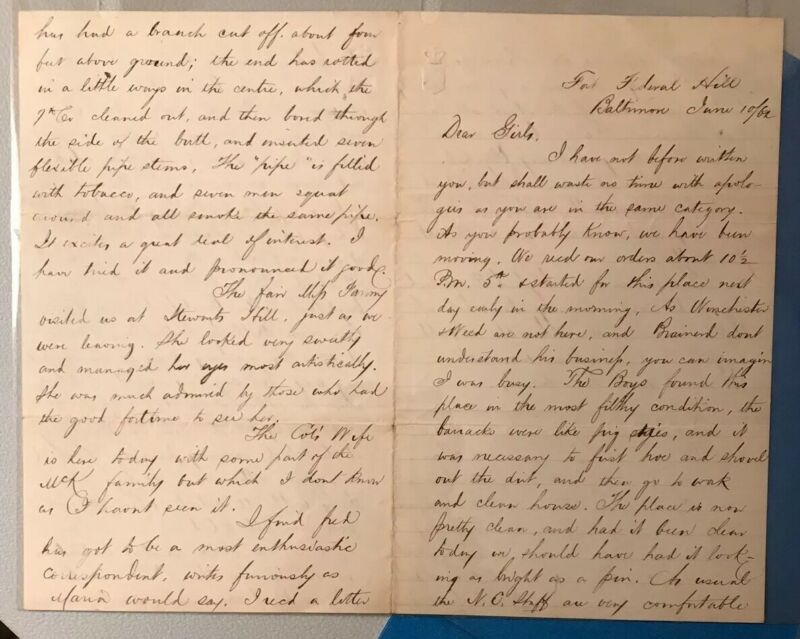 Fort Federal Hill
Baltimore June 10/62
Dear Girls.
I have not before written
you, but shall waste no time with apolo-
gies as you are in the same category.
As you probably know, we have been
moving. We recd our orders about 10 1/2
P.m. 5th. & started for this place next
day early in the morning. As Winchester
& Weed are not here, and Brainerd dont
understand his business, you can imagin
I was busy. The Boys found this
place in the most filthy condition, the
barracks were like pig sties, and it
was necessary to first hoe and shovel
out the dirt, and then go to work
and clean house. The place is now
pretty clean, and had it been clear
today we should have had it look-
ing as bright as a pin. As usual
the N.C. Staff are very comfortable
has had a branch cut off about four
feet above ground; the end has rotted
in a little ways in the centre, which the
7th Co cleaned out, and then bored through
the side of the butt, and inserted seven
flexible pipe stems, The "pipe" is filled
with tobacco, and seven men squat
around and all smoke the same pipe.
It excites a great deal of interest. I
have tried it and pronounced it good.
The fair Miss Fanny
visited us at Stewarts Hill, just as we
were leaving. She looked very
and managed her eyes most artistically.
She was much admired by those who had
the good fortune to see her.
The Col's Wife
is here today with some part of the
McK family but which I dont know
as I havnt seen it.
I find fred
has got to be a most enthusiastic
correspondent, writes furiously as
Maria would say. I recd a letter